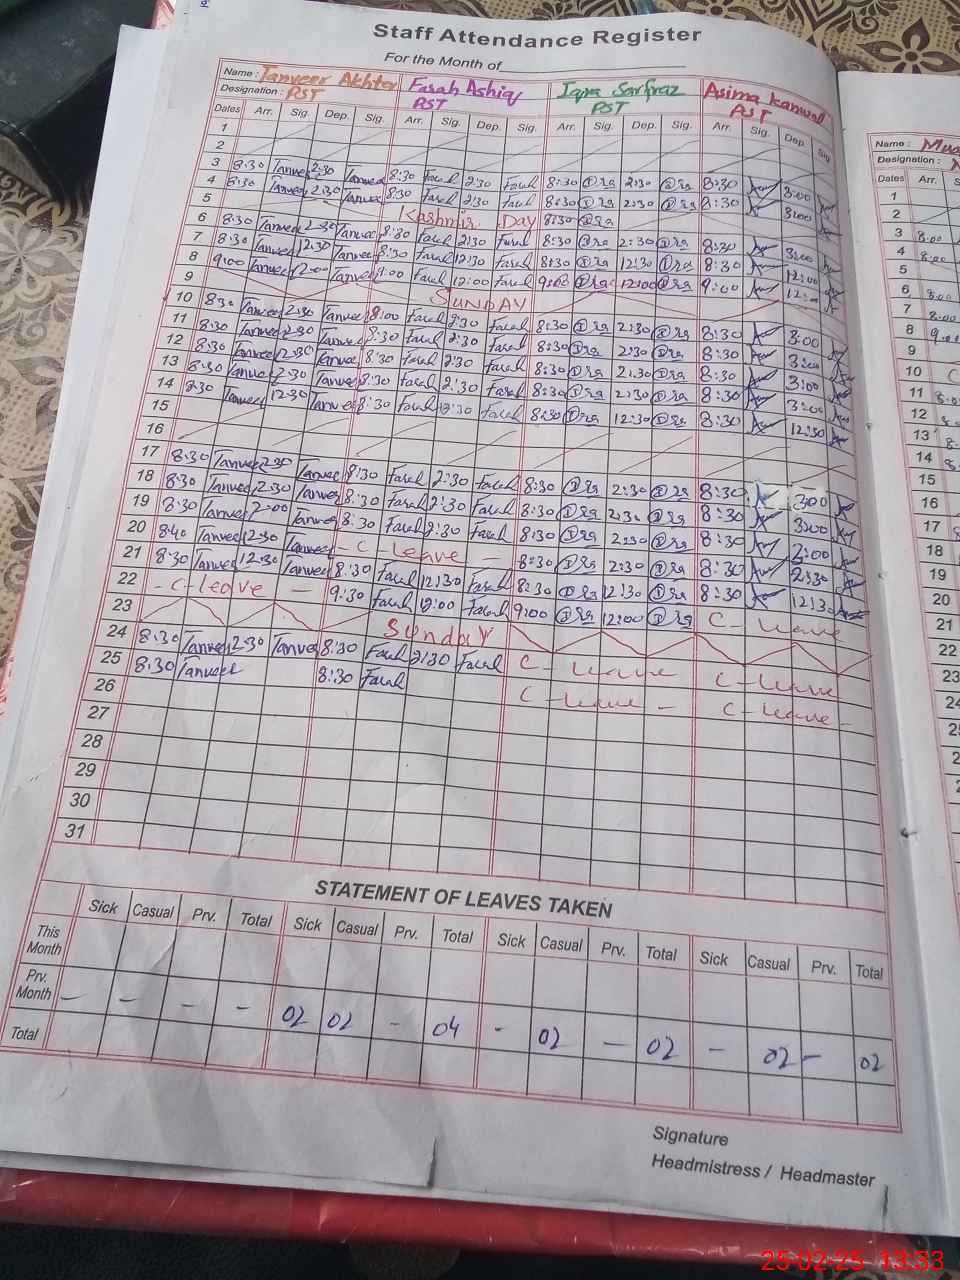 Staff Attendance Register
For the Month of
Name : Tanveer Akhter Farah Ashiq Iqra Sarfraz Asima Kanwal
Designation : PST PST PST PST
Dates Arr. Sig. Dep. Sig. Arr. Sig. Dep. Sig. Arr. Sig. Dep. Sig. Arr. Sig. Dep. Sig.
1
2
3 8:30 Tanveer 2:30 Tanveer 8:30 Farah 2:30 Farah 8:30 Iqra 2:30 Iqra 8:30 3:00
4 8:30 Tanveer 2:30 Tanveer 8:30 Farah 2:30 Farah 8:30 Iqra 2:30 Iqra 8:30 3:00
5 Kashmir Day 8:30 Iqra
6 8:30 Tanveer 2:30 Tanveer 8:30 Farah 2:30 Farah 8:30 Iqra 2:30 Iqra 8:30 3:00
7 8:30 Tanveer 12:30 Tanveer 8:30 Farah 12:30 Farah 8:30 Iqra 12:30 Iqra 8:30 12:00
8 9:00 Tanveer 12:00 Tanveer 9:00 Farah 12:00 Farah 9:00 Iqra 12:00 Iqra 9:00
9 SUNDAY
10 8:30 Tanveer 2:30 Tanveer 8:00 Farah 2:30 Farah 8:30 Iqra 2:30 Iqra 8:30 3:00
11 8:30 Tanveer 2:30 Tanveer 8:30 Farah 2:30 Farah 8:30 Iqra 2:30 Iqra 8:30 3:00
12 8:30 Tanveer 2:30 Tanveer 8:30 Farah 2:30 Farah 8:30 Iqra 2:30 Iqra 8:30 3:00
13 8:30 Tanveer 2:30 Tanveer 8:30 Farah 2:30 Farah 8:30 Iqra 2:30 Iqra 8:30 3:00
14 8:30 Tanveer 12:30 Tanveer 8:30 Farah 12:30 Farah 8:30 Iqra 12:30 Iqra 8:30 12:30
15
16
17 8:30 Tanveer 2:30 Tanveer 8:30 Farah 2:30 Farah 8:30 Iqra 2:30 Iqra 8:30 3:00
18 8:30 Tanveer 2:30 Tanveer 8:30 Farah 2:30 Farah 8:30 Iqra 2:30 Iqra 8:30 3:00
19 8:30 Tanveer 2:00 Tanveer 8:30 Farah 2:30 Farah 8:30 Iqra 2:30 Iqra 8:30 2:00
20 8:40 Tanveer 12:30 Tanveer - C - Leave - 8:30 Iqra 2:30 Iqra 8:30 2:30
21 8:30 Tanveer 12:30 Tanveer 8:30 Farah 12:30 Farah 8:30 Iqra 12:30 Iqra 8:30 12:30
22 - C - Leave - 9:30 Farah 12:00 Farah 9:00 Iqra 12:00 Iqra C - Leave
23 Sunday
24 8:30 Tanveer 2:30 Tanveer 8:30 Farah 2:30 Farah C - Leave C - Leave
25 8:30 Tanveer 8:30 Farah C - Leave - C - Leave -
26
27
28
29
30
31
STATEMENT OF LEAVES TAKEN
Sick Casual Prv. Total Sick Casual Prv. Total Sick Casual Prv. Total Sick Casual Prv. Total
This Month
Prv. Month - - - - 02 02 - 04 - 02 - 02 - 02 - 02
Total
Signature
Headmistress / Headmaster
Name :
Designation :
Dates Arr.
1
2
3 8:00
4 8:00
5
6 8:00
7 8:00
8
9
10
11
12
13
14
15
16
17
18
19
20
21
22
23
24
25-02-25 13:33